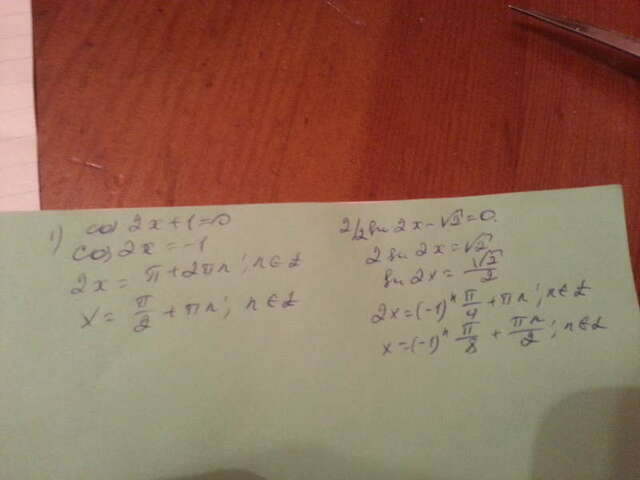 1) cos 2x+1=0
cos 2x=-1
2x= π+2πn; n∈Z
x= π/2 +πn; n∈Z
2) 2sin 2x-√2=0.
2 sin 2x=√2
sin 2x= √2/2
2x=(-1)ⁿ π/4 +πn; n∈Z
x=(-1)ⁿ π/8 + πn/2; n∈Z